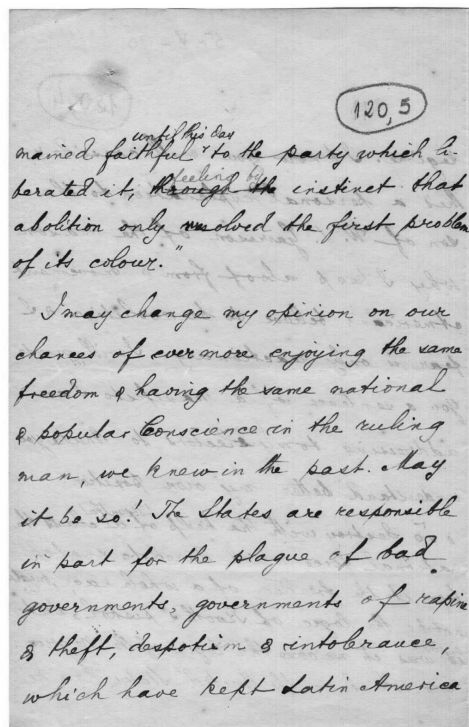 120,5
until this day
mained faithful ˅ to the party which li-
feeling by
berated it, through the instinct that
abolition only resolved the first problem
of its colour."
I may change my opinion on our
chances of evermore enjoying the same
freedom & having the same national
& popular Conscience in the ruling
man, we knew in the past. May
it be so! The States are responsible
in part for the plague of bad
governments, governments of rapine
& theft, despotism & intolerance,
which have kept Latin America